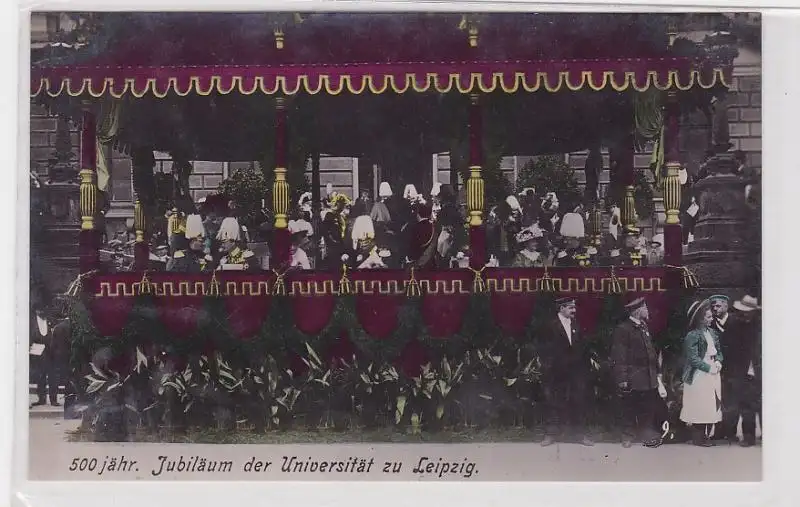 9.
500 jähr. Jubiläum der Universität zu Leipzig.